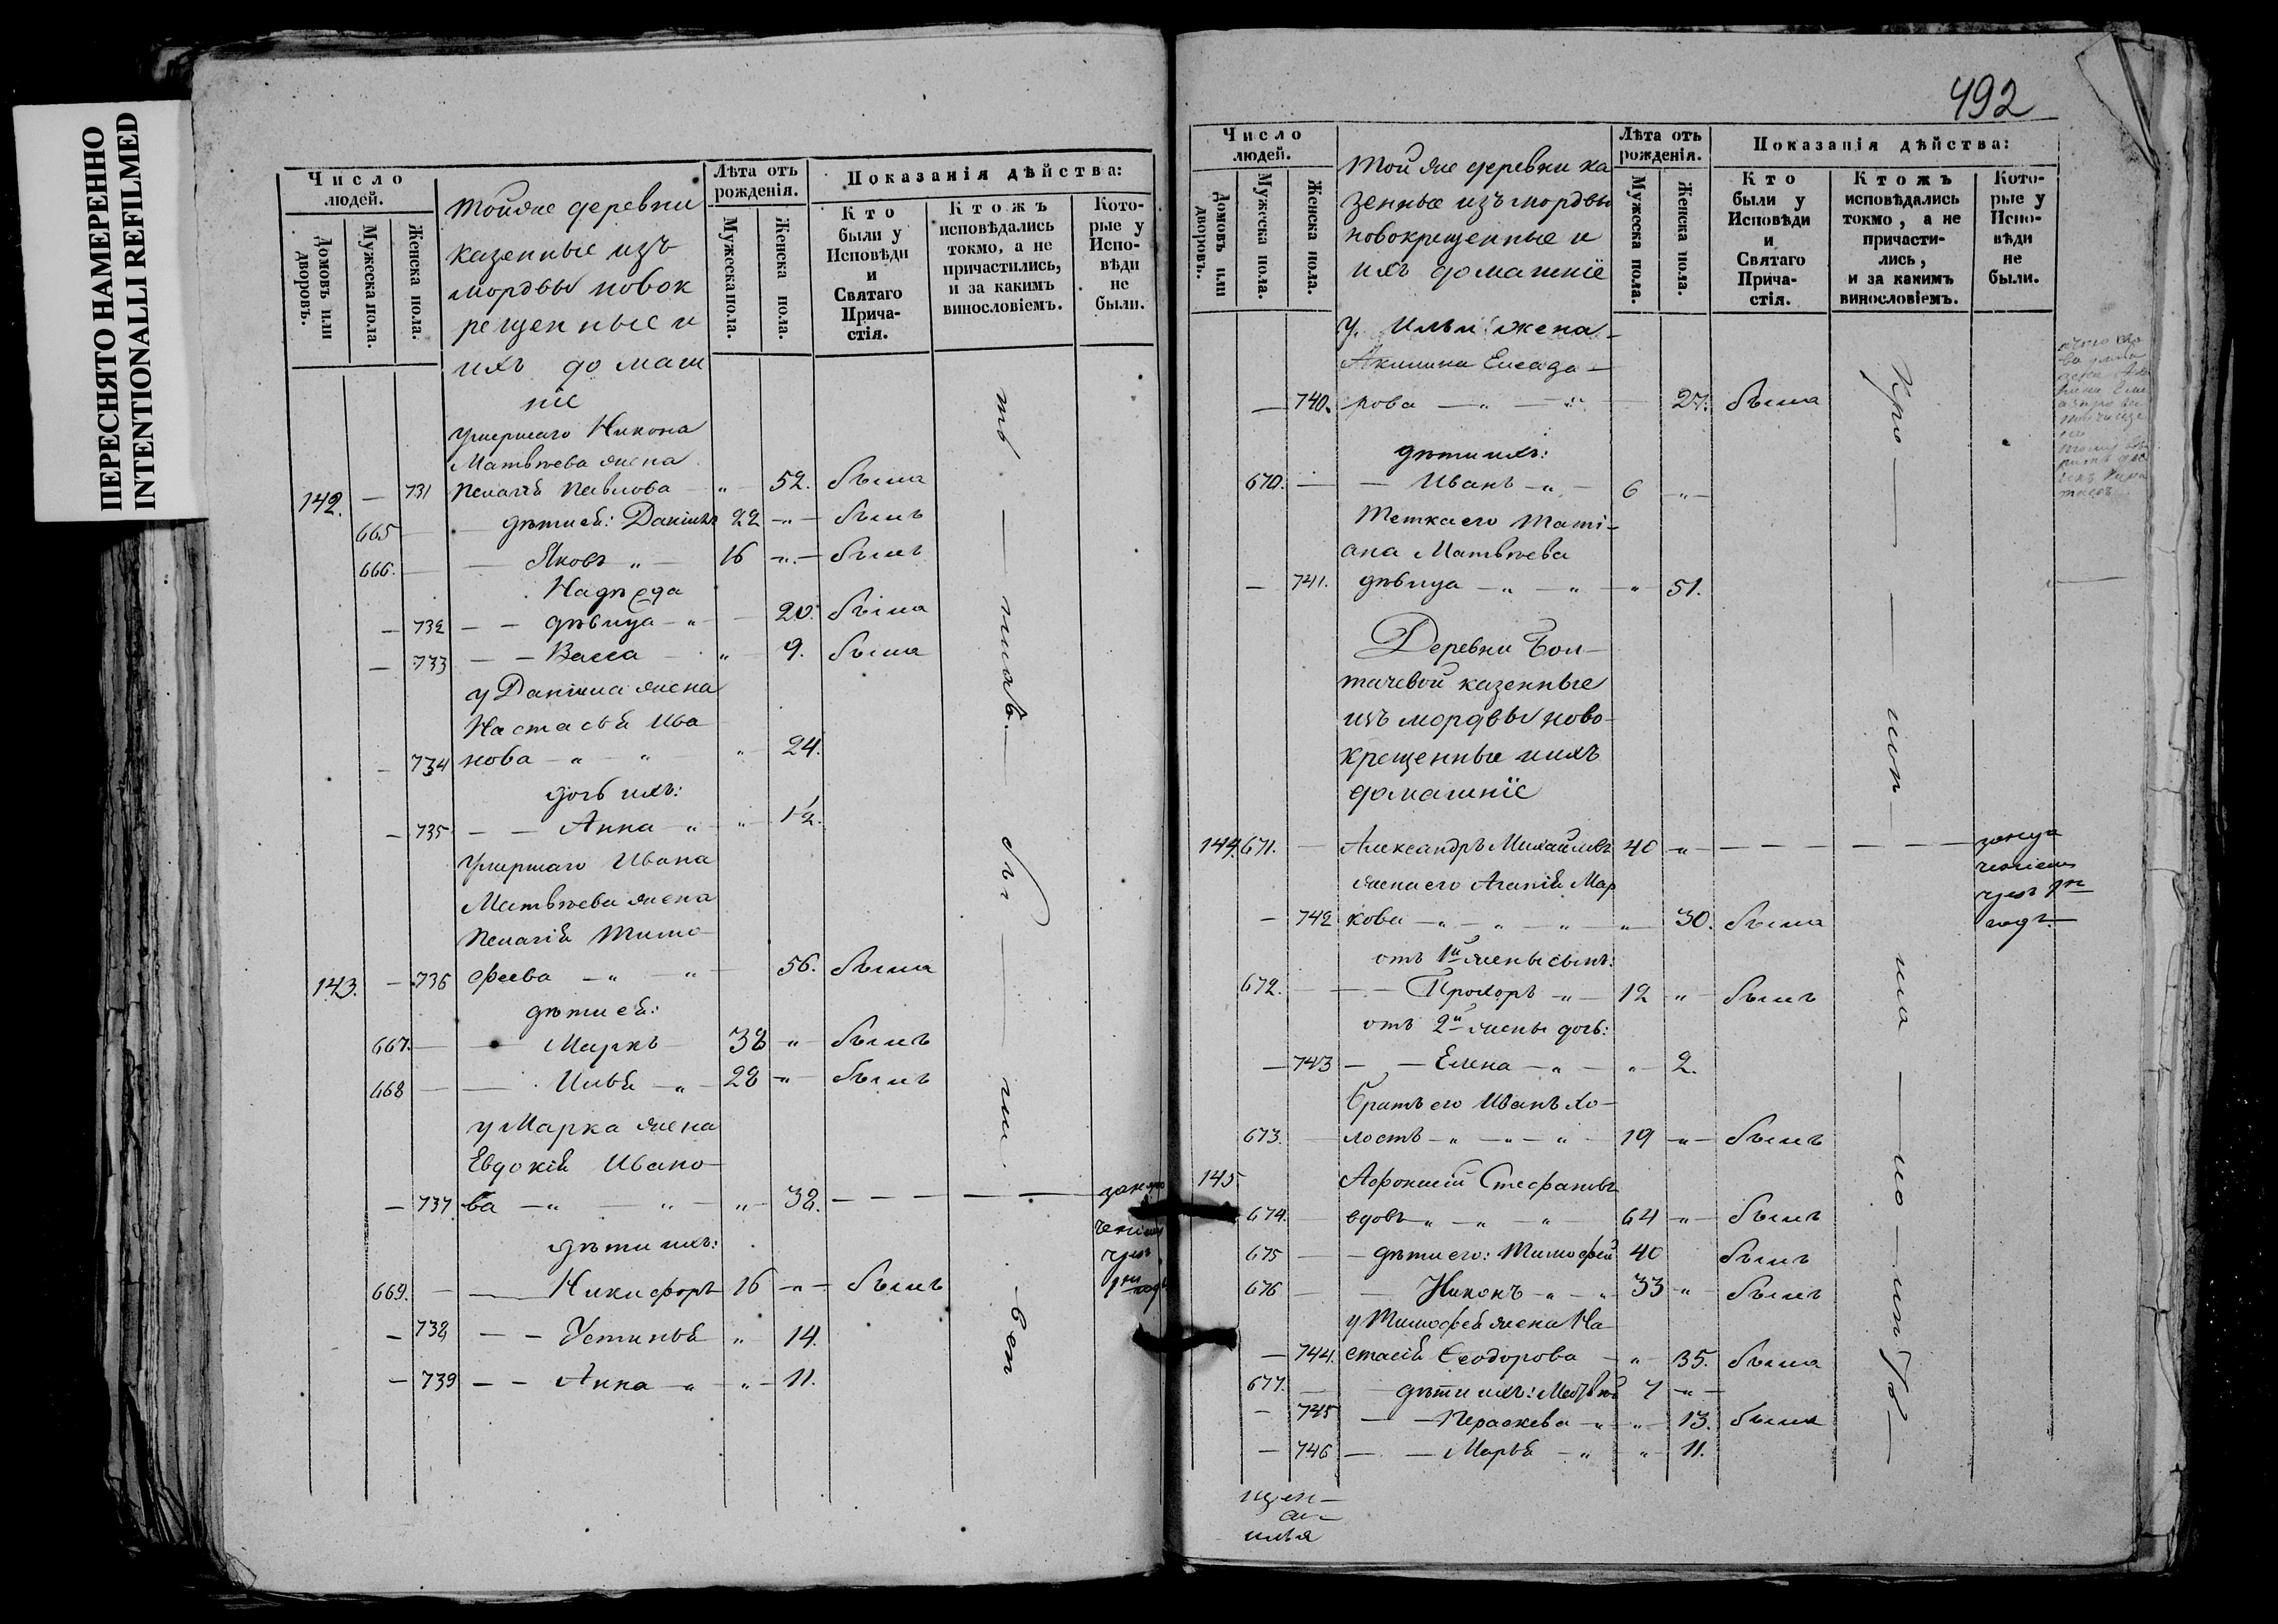 ПЕРЕСНЯТО НАМЕРЕННО
INTENTIONALLI REFILMED
Число людей.
Домовъ или дворовъ.
Мужеска пола.
Женска пола.
Тойже деревни
казенные изъ
мордвы новок
рещенные и
ихъ домаш
ніе
Лѣта отъ рожденія.
Мужеска пола.
Женска пола.
Показанія дѣйства:
Кто были у Исповѣди и Святаго Прича-стія.
Ктожъ исповѣдались токмо, а не причастились, и за какимъ винословіемъ.
Кото-рые у Испо-вѣди не были.
Умершаго Никона
Матвѣева жена
142. — 731 Пелагія Павлова „ 52. была
665 — дѣти ея: Даніилъ 22 „ былъ
666. — Яковъ „ 16 „ былъ
Надѣжда
— 732 — — дѣвица „ 20. была
— 733 — — Васса „ 9. была
у Даніила жена
Настасья Ива
— 734 нова „ „ „ 24.
дочь ихъ:
— 735 — — Анна „ „ 1½.
Умершаго Ивана
Матвѣева жена
Пелагія Тимо
143. — 736 феева „ „ 56. была
дѣти ея:
667. — Маркъ 38 „ былъ
668 — Илья „ 28 „ былъ
у Марка жена
Евдокія Ивано
— 737. ва „ „ „ 38. — — — —
дѣти ихъ:
669. — Никифоръ 16 „ былъ
— 738 — — Устинья „ 14.
— 739 — — Анна „ „ 11.
492
Число людей.
Домовъ или дворовъ.
Мужеска пола.
Женска пола.
Той же деревни ка
зенные изъ мордвы
новокрещенные и
ихъ домашніе
Лѣта отъ рожденія.
Мужеска пола.
Женска пола.
Показанія дѣйства:
Кто были у Исповѣди и Святаго Прича-стія.
Ктожъ исповѣдались токмо, а не причасти-лись, и за какимъ винословіемъ.
Кото-рые у Испо-вѣди не были.
У Ильи жена
Акилина Елеаза
— 740. рова „ „ 27. была
дѣти ихъ:
670. — — Иванъ „ 6 „
Тетка его Тати-
ана Матвѣева
— 741. дѣвица „ „ „ 51.
Деревни Бол
тачевой казенные
изъ мордвы ново
крещенные и ихъ
домашніе
144. 671. — Александръ Михайловъ 40 „ — — — — —
жена его Агапія Мар
— 742 кова „ „ „ „ 30. была
отъ 1й жены сынъ:
672. — — Прохоръ „ 12 „ былъ
отъ 2й жены дочь:
— 743 — — Елена „ „ 2.
Братъ его Иванъ хо-
673. — лостъ „ „ „ 19 „ былъ
145 Афонасій Стефановъ
674. — вдовъ „ „ „ 64 „ былъ
675 — — дѣти его: Тимофей 40 былъ
676 — — Никонъ „ „ 33 „ былъ
у Тимофея жена На
— 744. стасія Ѳеодорова „ 35. была
677. — дѣти ихъ: Матвѣй 7 „
— 745 — — Параскева „ „ 13. была
— 746 — — Марья „ „ 11.